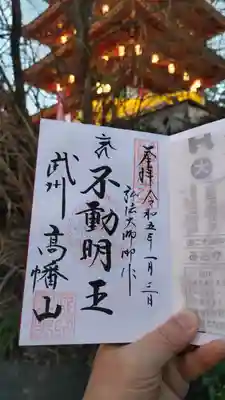 奉拝 令和五年一月三日
弘法大師御作
不動明王
武州 高幡山